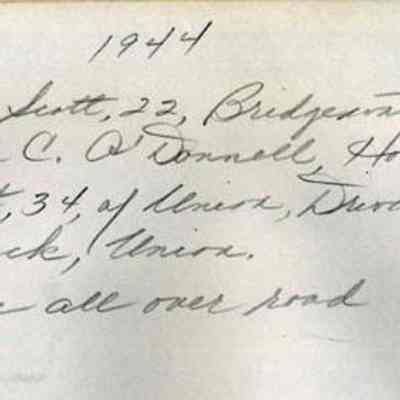 1944
Scott, 22, Bridgewat
C. O'Donnell, Ho
, 34, of Union, Drive
ck, Union.
all over road